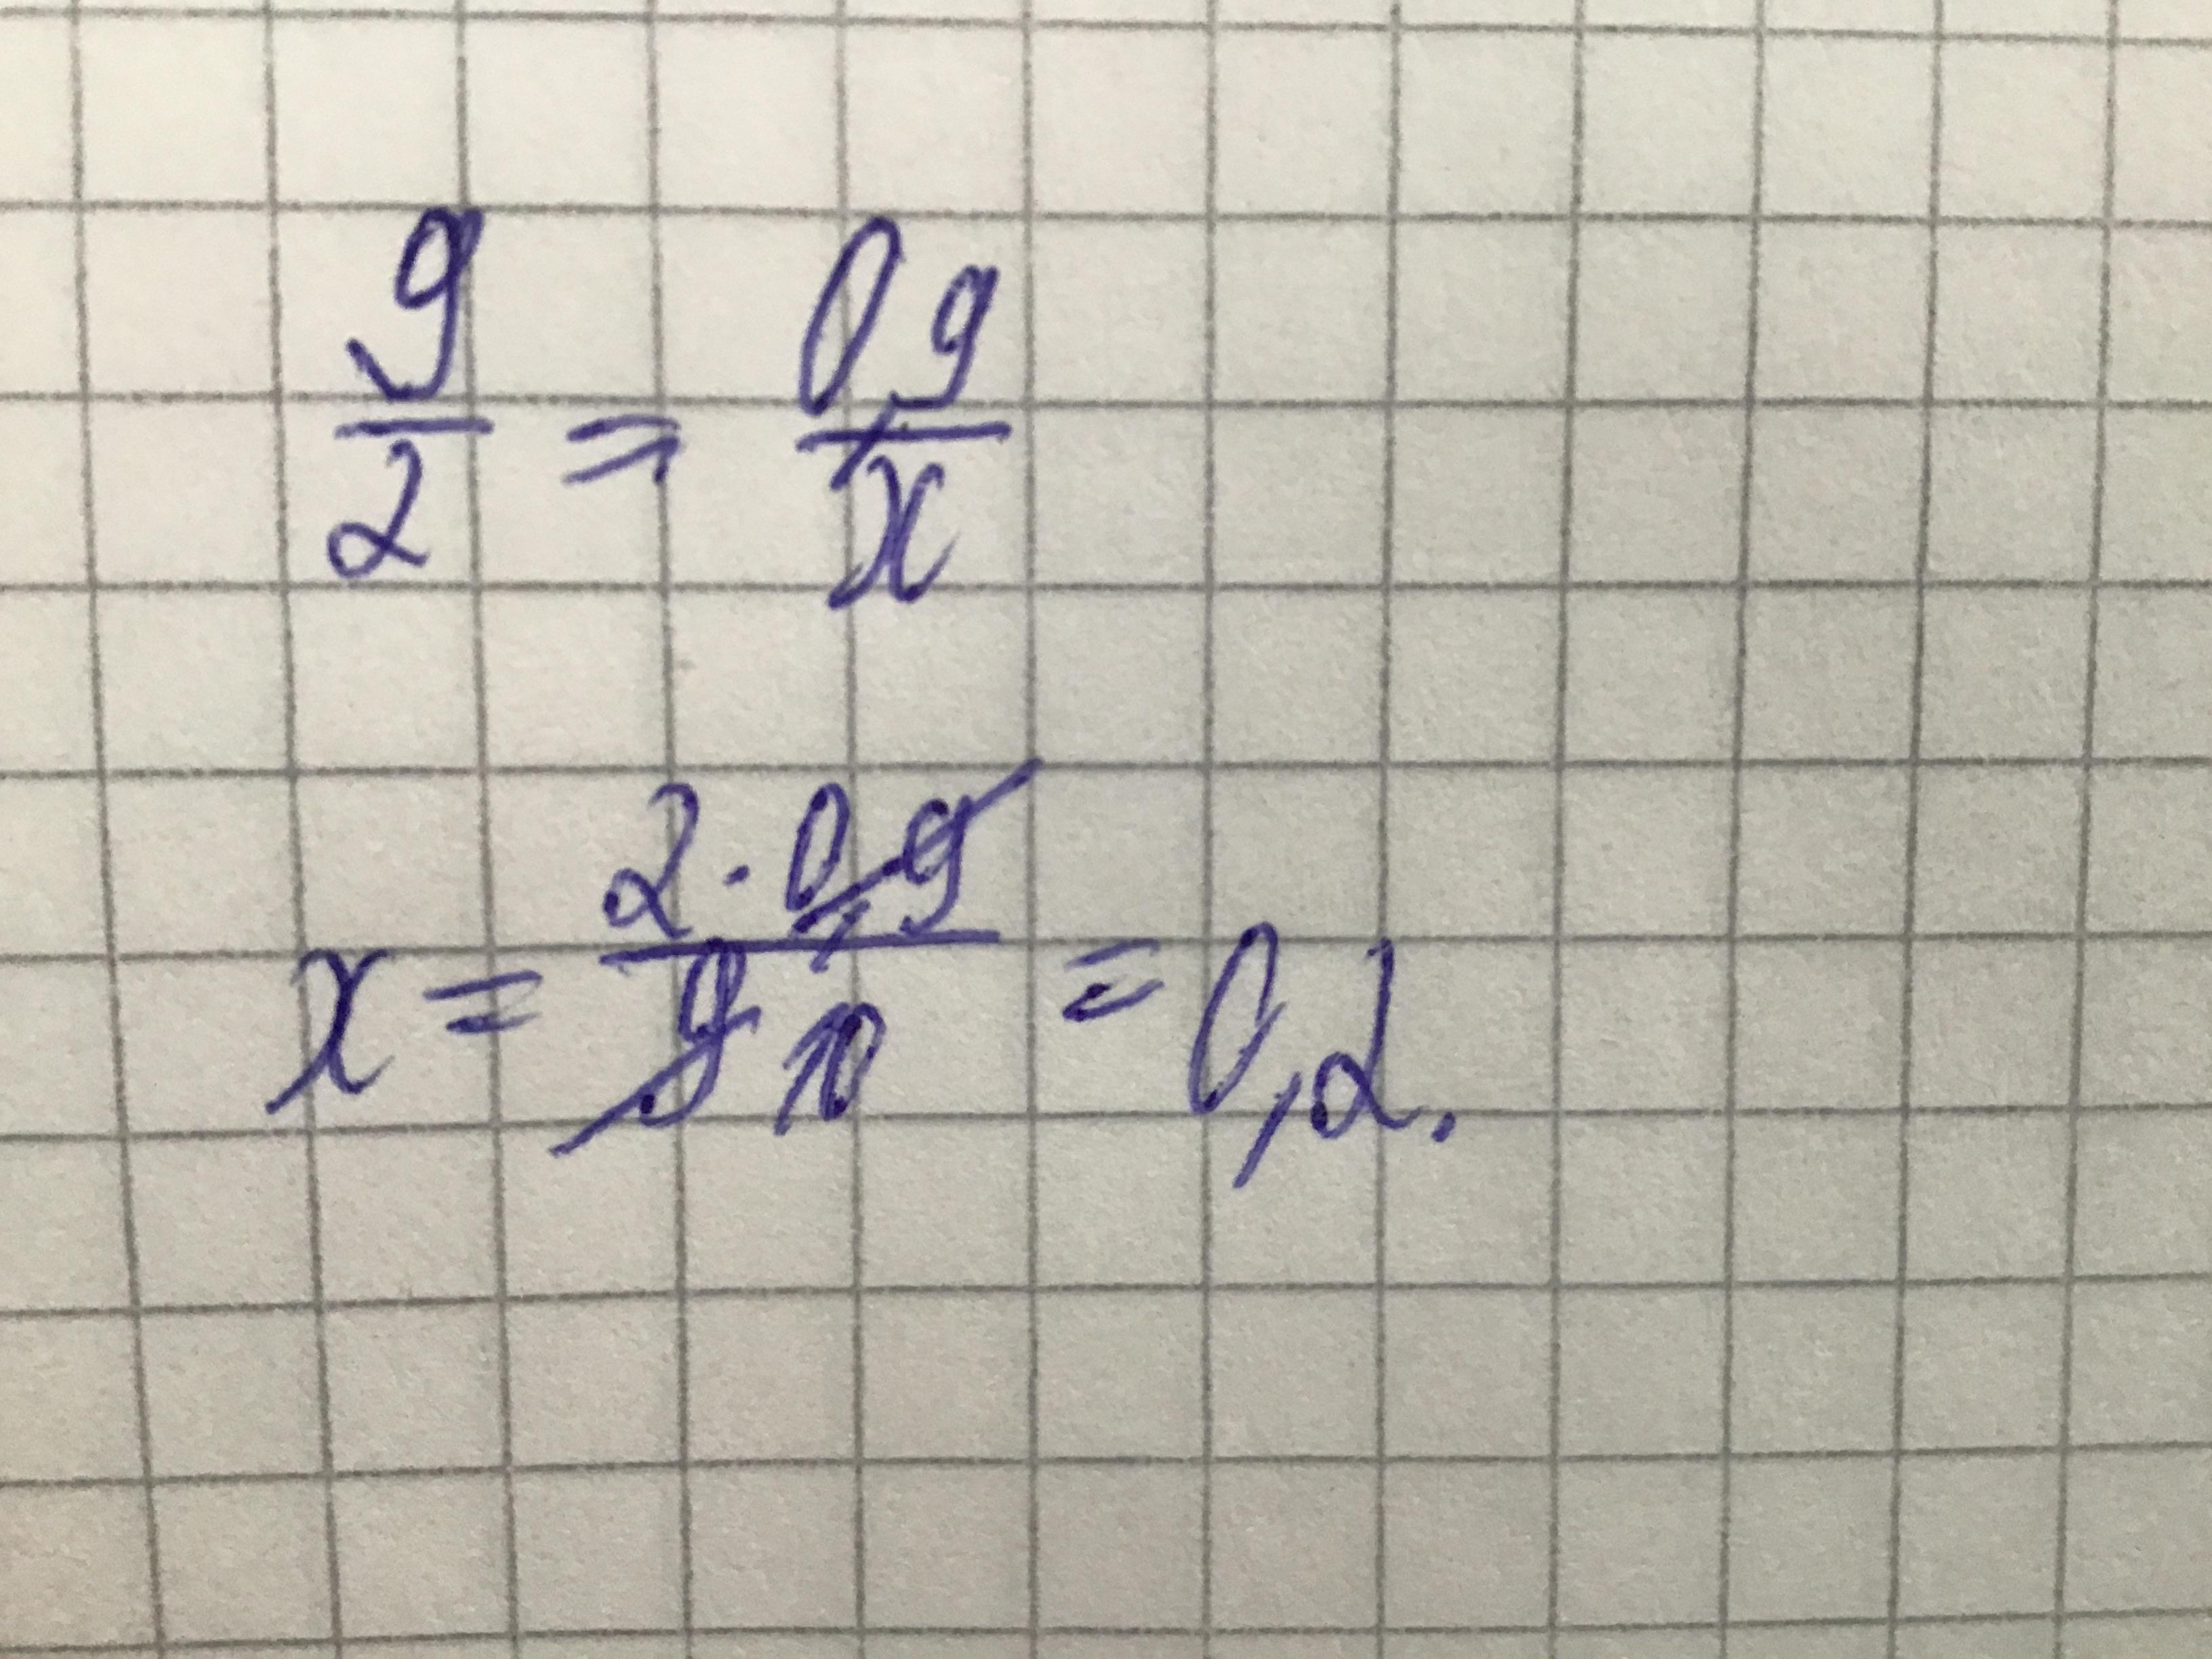 9/2 = 0,9/x
x = 2·0,9/9 10 = 0,2.